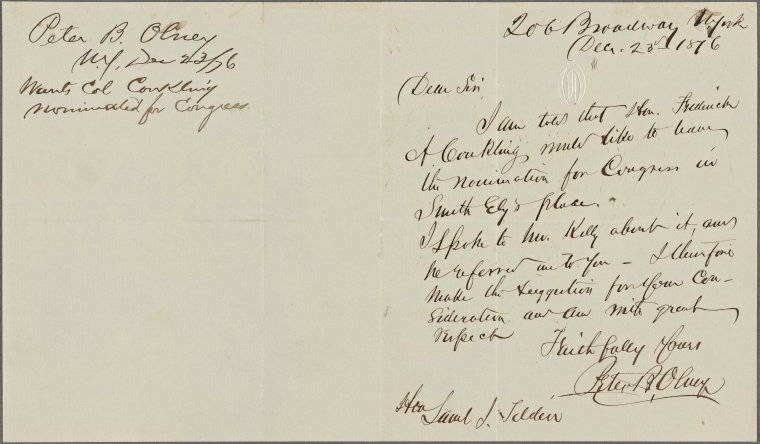 Peter B. Olney
N.Y, Dec 23/76
Wants Col Conkling
nominated for Congress.
206 Broadway NYork
Decr. 23d 1876
Dear Sir,
I am told that Hon. Frederick
A. Conkling would like to have
the nomination for Congress in
Smith Ely's place.
I spoke to Mr. Kelly about it, and
he referred me to you - I therefore
make the suggestion for your con-
sideration and am with great
respect
Faithfully Yours
Peter B. Olney
Hon
Saml J. Tilden